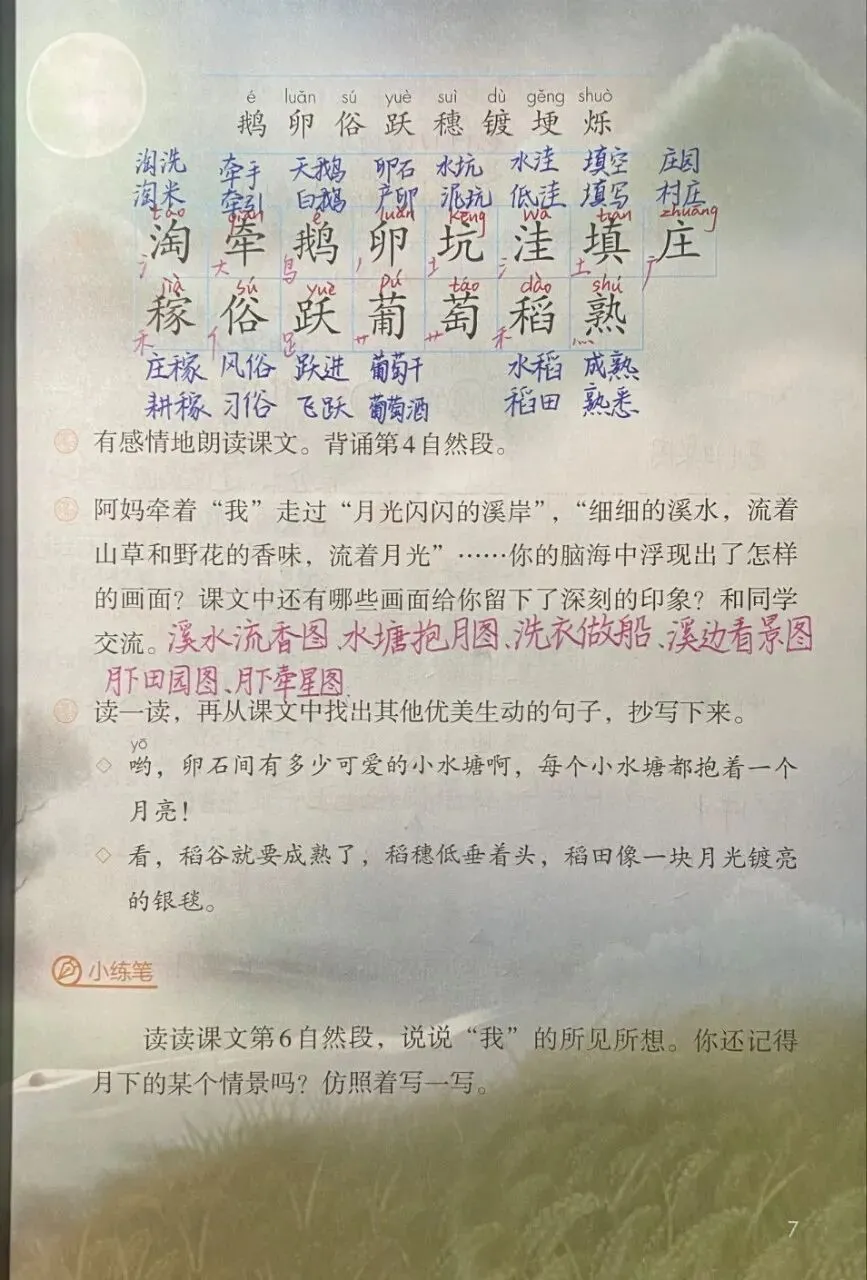 é luǎn sú yuè suì dù gěng shuò
鹅 卵 俗 跃 穗 镀 埂 烁
淘洗 牵手 天鹅 卵石 水坑 水洼 填空 庄园
淘米 牵引 白鹅 产卵 泥坑 低洼 填写 村庄
táo qiān é luǎn kēng wā tián zhuāng
淘 牵 鹅 卵 坑 洼 填 庄
氵 大 鸟 丿 土 氵 土 广
jià sú yuè pú táo dào shú
稼 俗 跃 葡 萄 稻 熟
禾 亻 𧾷 艹 艹 禾 灬
庄稼 风俗 跃进 葡萄干 水稻 成熟
耕稼 习俗 飞跃 葡萄酒 稻田 熟悉
有感情地朗读课文。背诵第4自然段。
阿妈牵着“我”走过“月光闪闪的溪岸”，“细细的溪水，流着
山草和野花的香味，流着月光”……你的脑海中浮现出了怎样
的画面？课文中还有哪些画面给你留下了深刻的印象？和同学
交流。溪水流香图、水塘抱月图、洗衣做船、溪边看景图
月下田园图、月下牵星图
读一读，再从课文中找出其他优美生动的句子，抄写下来。
yō
◇ 哟，卵石间有多少可爱的小水塘啊，每个小水塘都抱着一个
月亮！
◇ 看，稻谷就要成熟了，稻穗低垂着头，稻田像一块月光镀亮
的银毯。
小练笔
读读课文第6自然段，说说“我”的所见所想。你还记得
月下的某个情景吗？仿照着写一写。
7